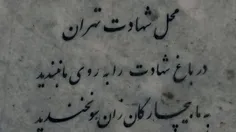 محل شهادت تهران
در باغ شهادت را به روی ما نبندید
به ما بیچارگان زان سو نخندید